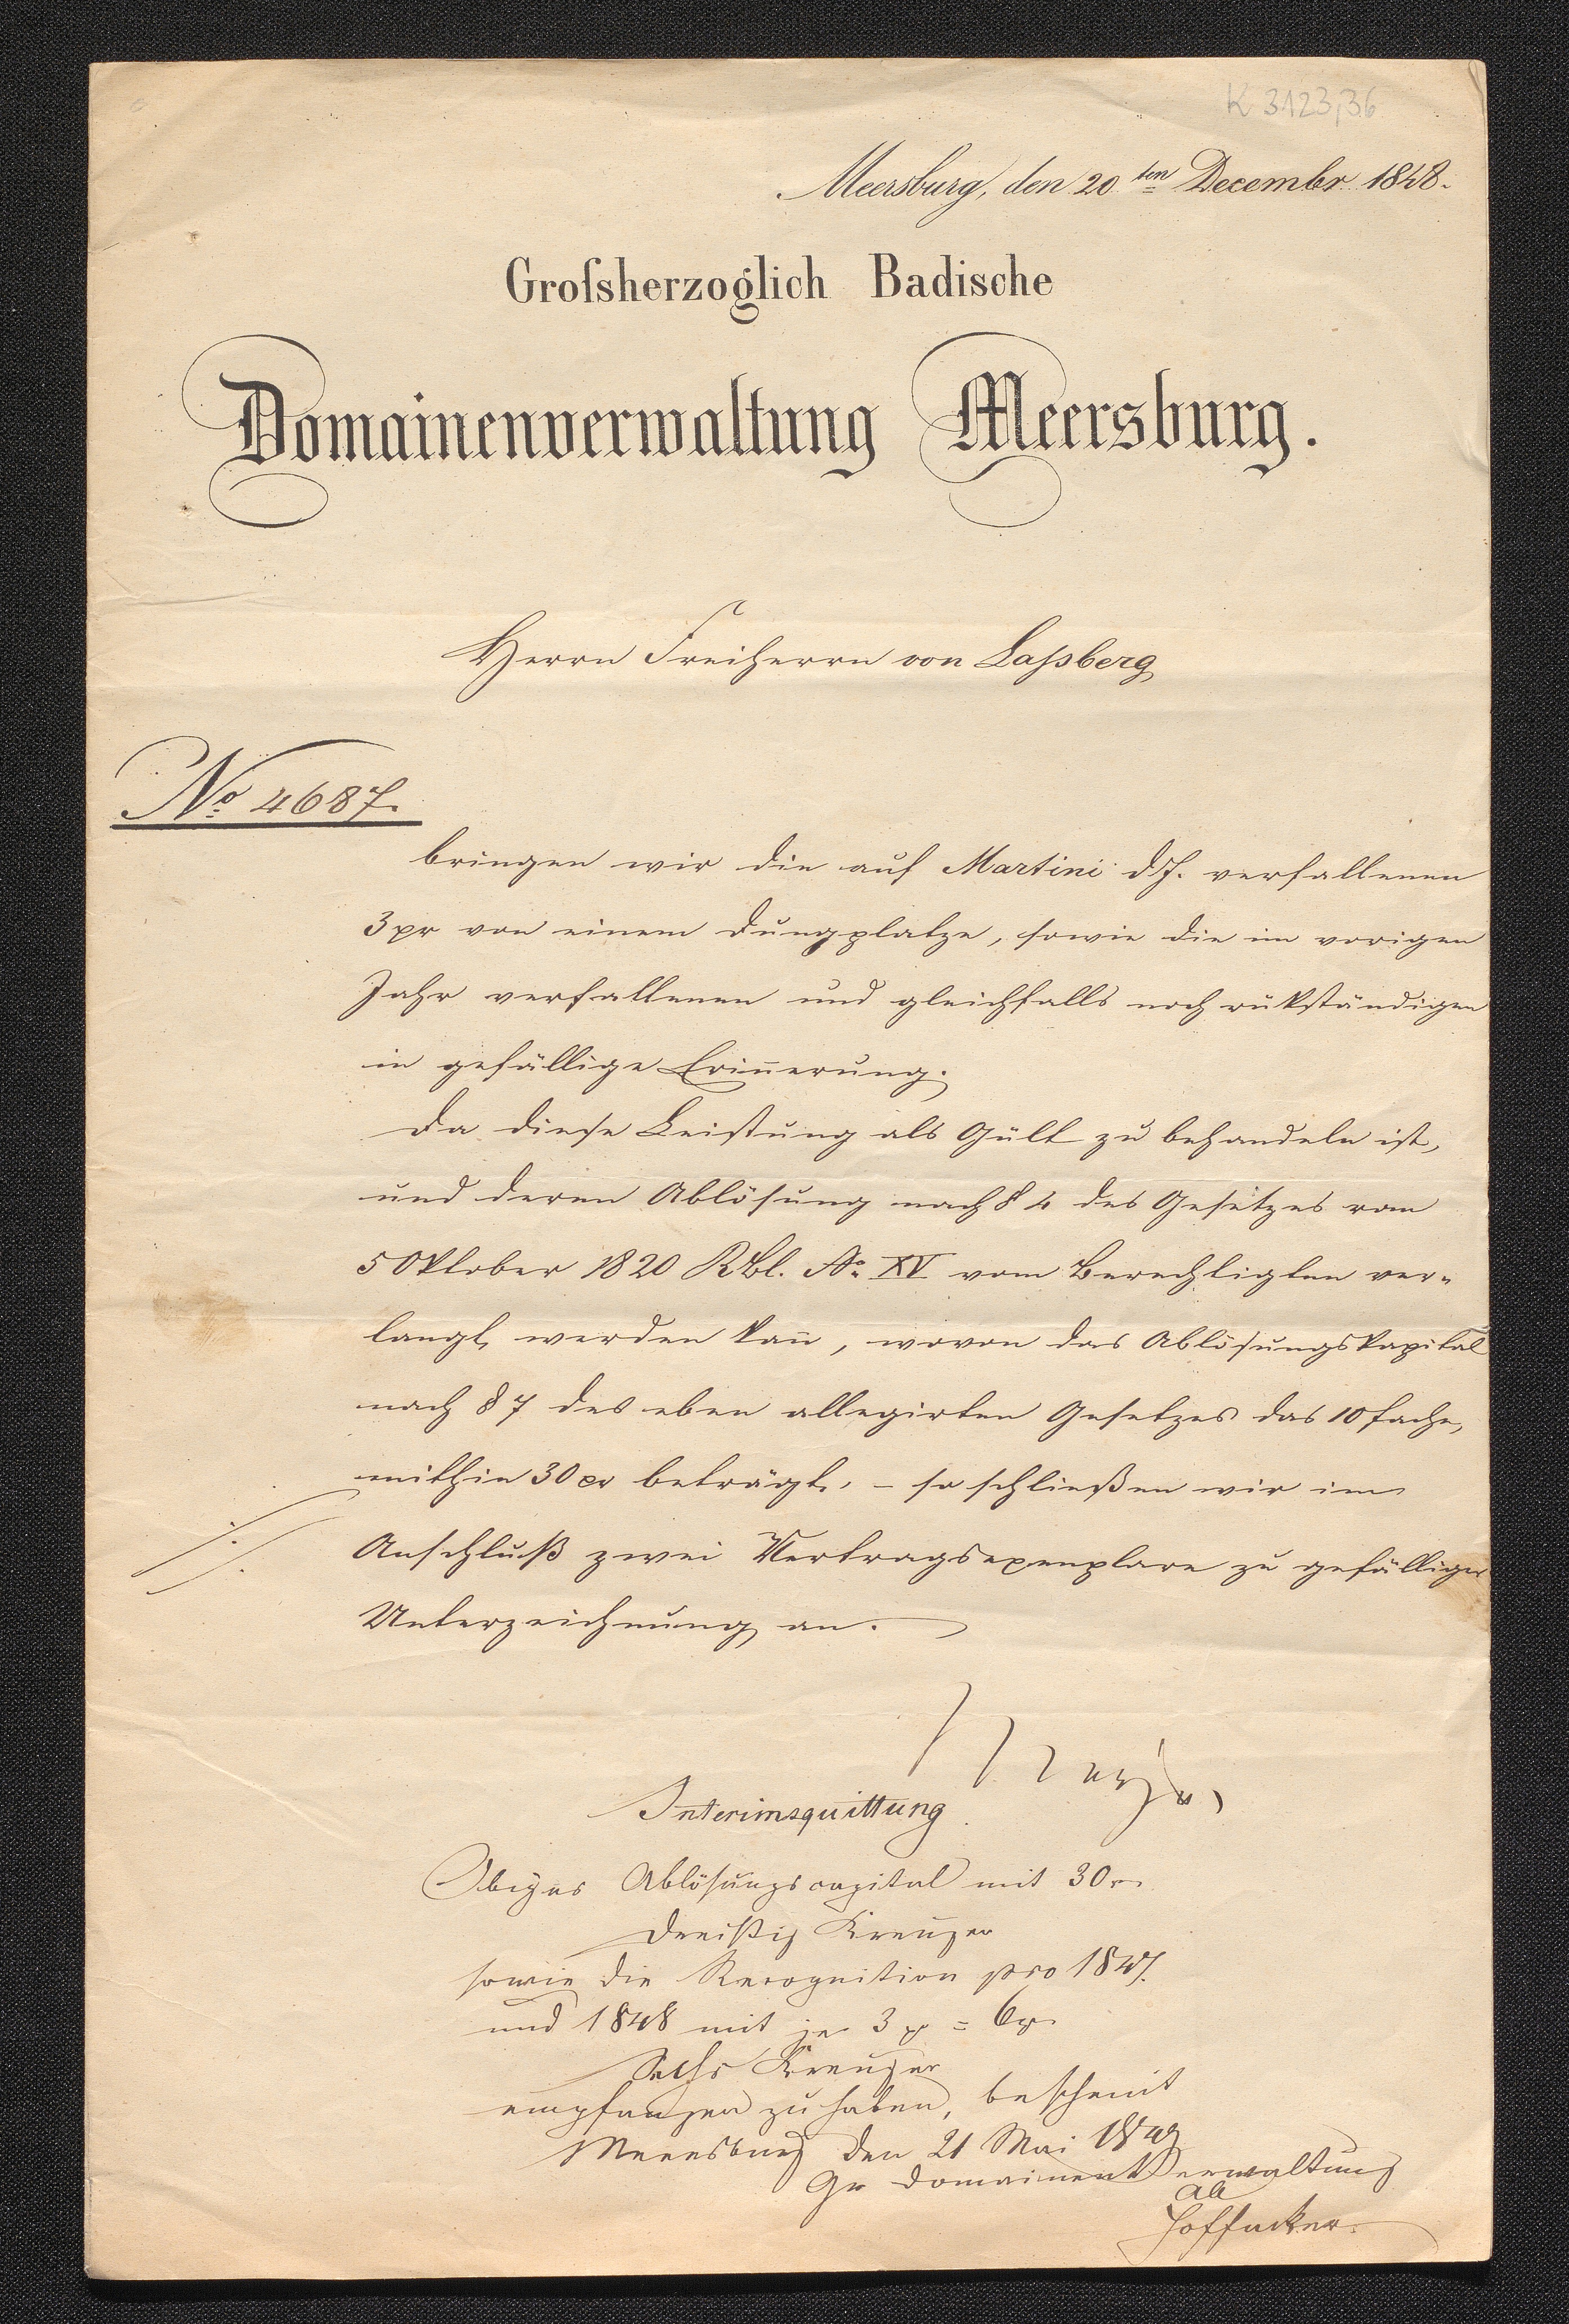 K 3123,36
Meersburg, den 20ten Decembr 1848.
Grofsherzoglich Badische
Domainenverwaltung Meersburg.
Herrn Freiherrn von Laßberg
No 4687.
bringen wir die auf Martini d.J. verfallenen
3 xr von einem Dungplatze, sowie die im vorigen
Jahr verfallenen und gleichfalls noch rükständigen
in gefällige Erin̄erung.
Da diese Leistung als Gült zu behandeln ist,
und deren Ablösung nach § 4 des Gesetzes vom
5 Oktober 1820 RBl. No XV vom Berechtigten ver-
langt werden kan̄, wovon das Ablösungskapital
nach § 7 des eben allegirten Gesetzes das 10fache,
mithin 30 xr beträgt, - so schließen wir im
Anschluß zwei Vertragsexemplare zu gefälliger
Unterzeichnung an.
Interimsquittung
Obiges Ablösungscapital mit 30 xr
Dreißig Kreuzer
sowie die Recognition pro 1847.
und 1848 mit je 3 xr = 6 xr
Sechs Kreuzer
empfangen zu haben, bescheint
Meersburg den 21 Mai 1849
Gr Domainenverwaltung
Hoffacker